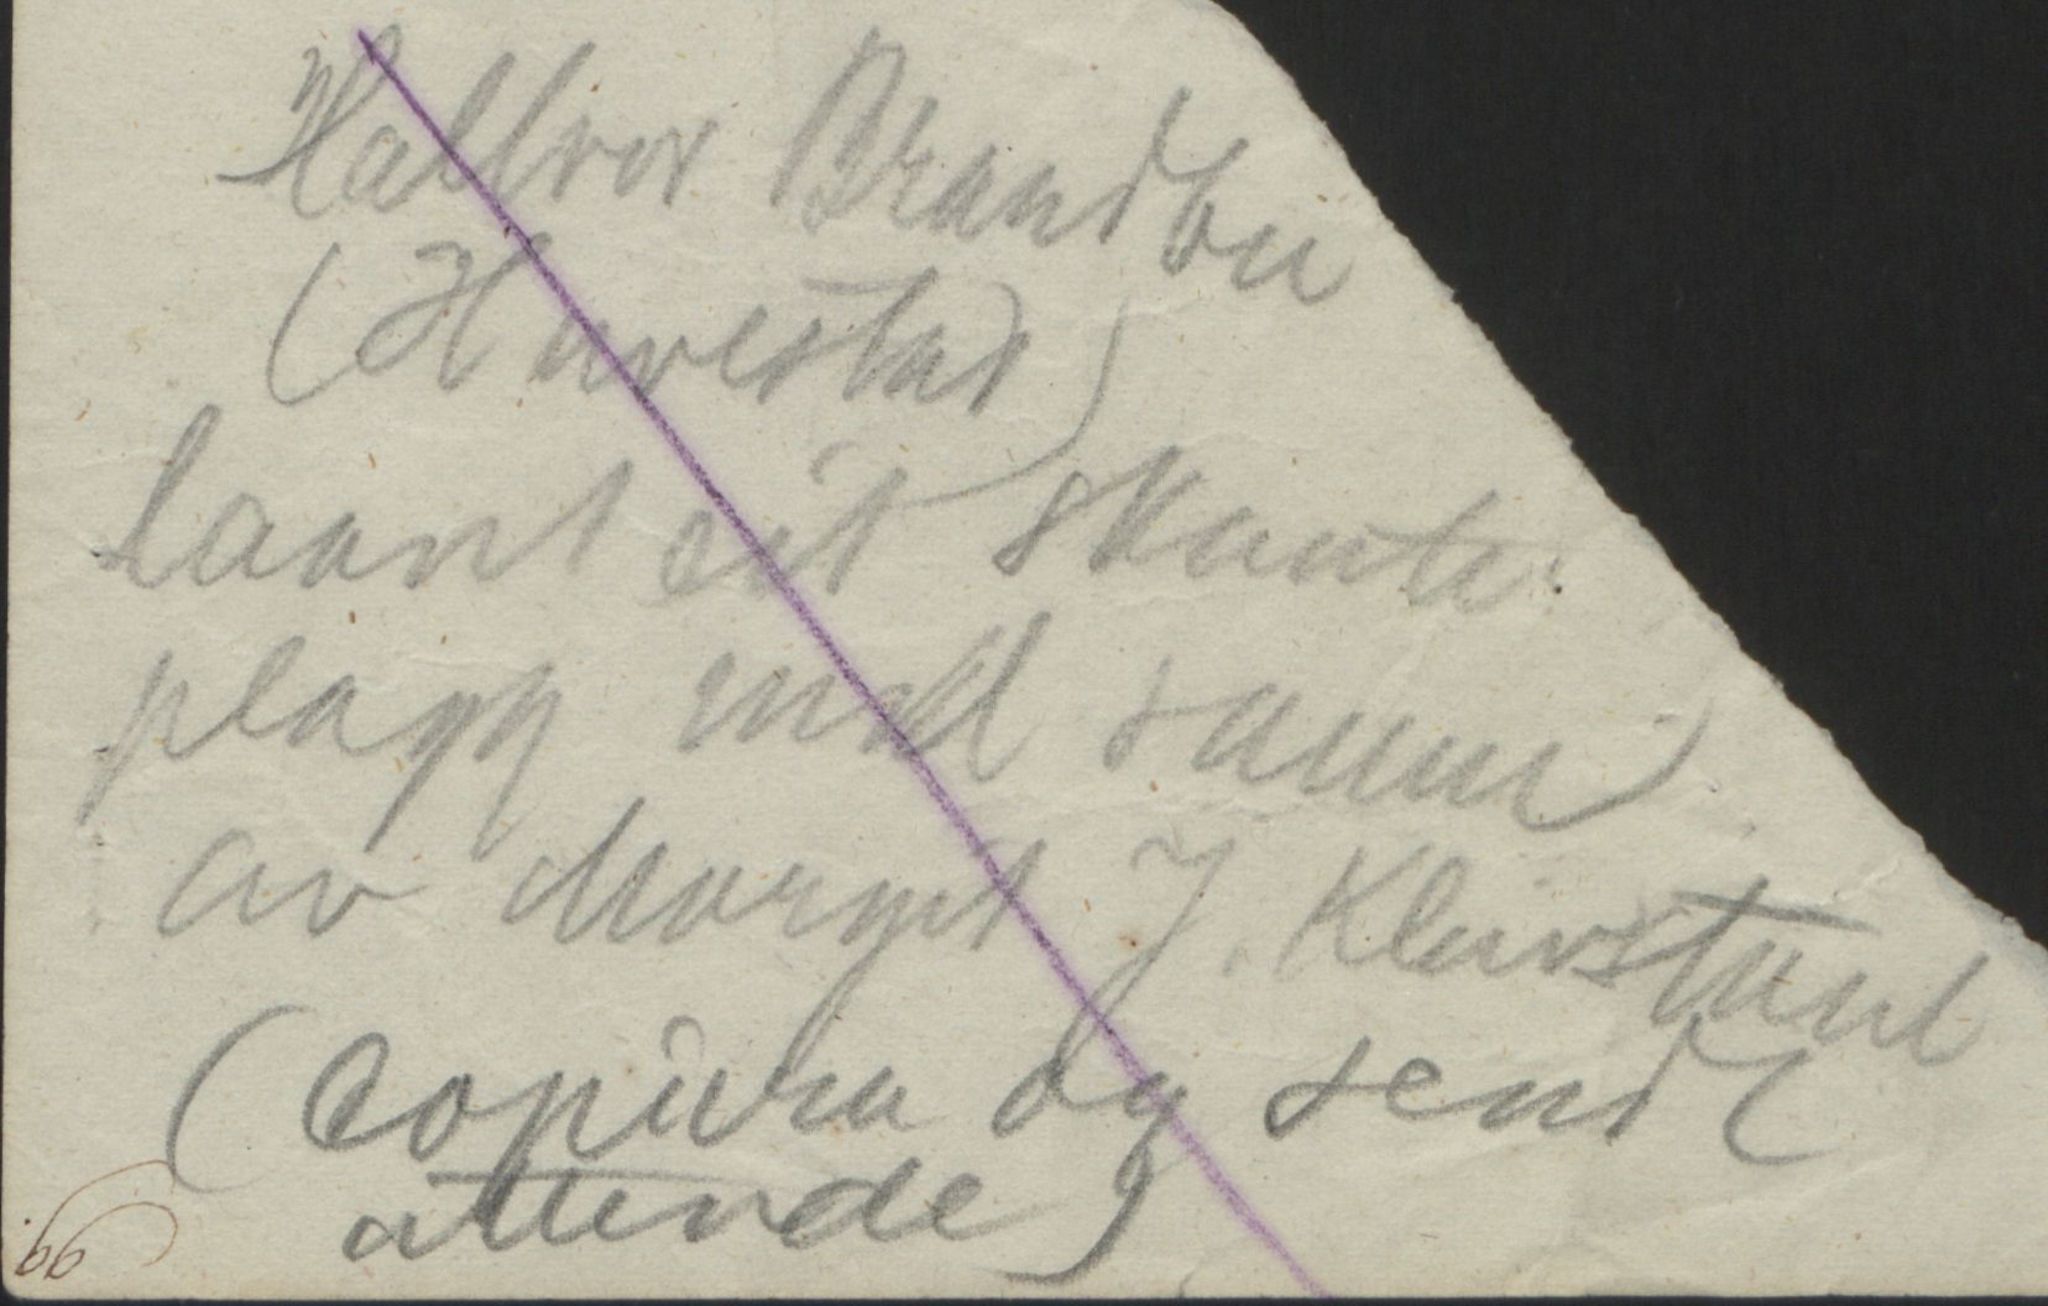 Hallvor Brandbu
(Harestad)
laant eit skaute
plagg med saum
av Margit J. Kleivstaul
(Copiera og send
attende)
66